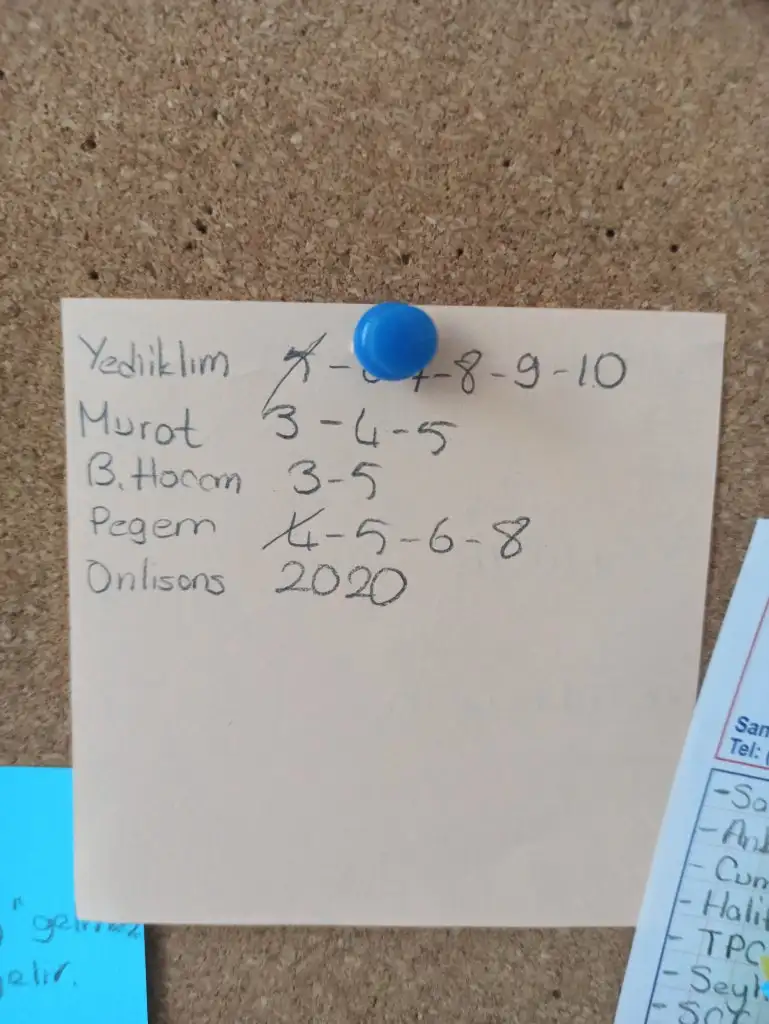 Yediiklim - 8 - 9 - 10
Murat 3 - 4 - 5
B. Hocam 3 - 5
Pegem 4 - 5 - 6 - 8
Önlisans 2020
" gelmez
gelir.
San
Tel: (
- So
- Anl
- Cum
- Halif
- TPC
- Seyh